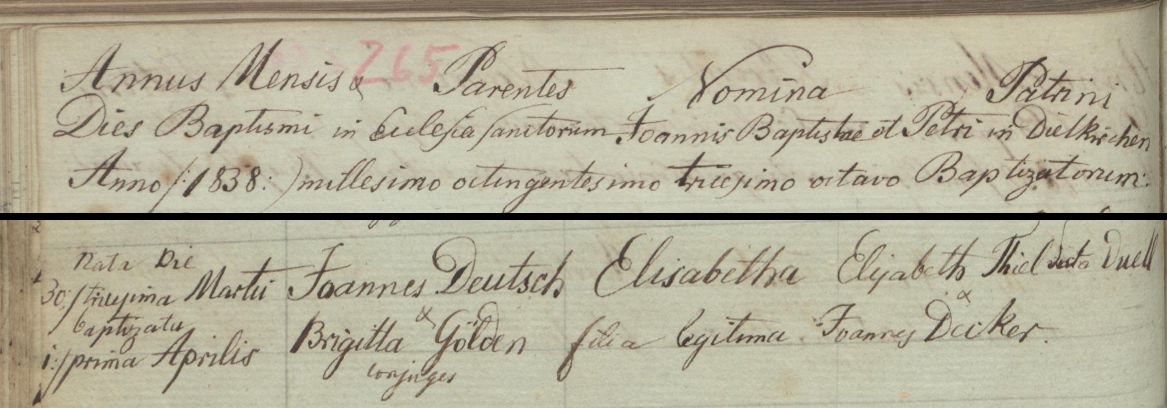 265
Annus Mensis & Parentes Nomina Patrini
Dies Baptismi in Ecclesia sanctorum Joannis Baptistae et Petri in Dielkirchen
Anno /:1838:) millesimo octingentesimo tricesimo octavo Baptizatorum:
Nata Die
30:/tricesima Martii Joannes Deutsch Elisabetha Elisabeth Thiel Duell
&
baptizata
1:/prima Aprilis Brigitta & Gölden filia legitima Joannes Decker.
conjuges